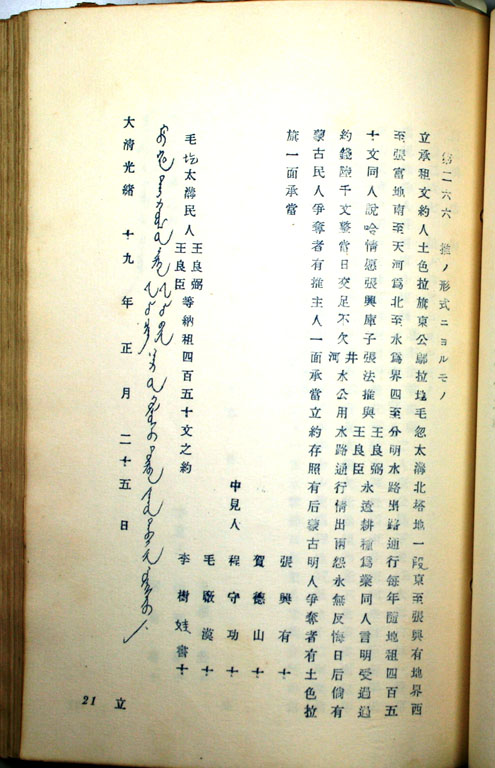 第二六六 推ノ形式ニヨルモノ
立承租文約人土色拉旗東公廍拉塊毛忽太溝北塔地一段東至張興有地界西
至張富地南至天河爲北至水爲界四至分明水路出路通行每年隨地租四百五
十文同人說哈情愿張興庫子張法推與王良弼王良臣永遠耕種爲業同人言明受過過
約錢陸千文整當日交足不欠河井水公用水路通行情出兩怨永無反悔日后倘有
蒙古民人爭奪者有推主人一面承當立約存照有后蒙古明人爭奪者有土色拉
旗一面承當
張興有十
賀德山十
中見人 程守功十
毛廠漢十
李樹娃書十
毛圪太溝民人王良弼王良臣等納租四百五十文之約
大淸光緒 十九年正月二十五日 立
21